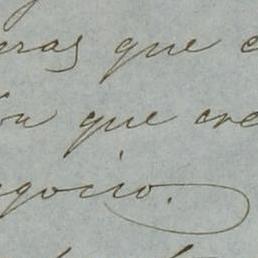 eras que c
on que cre
egocio.